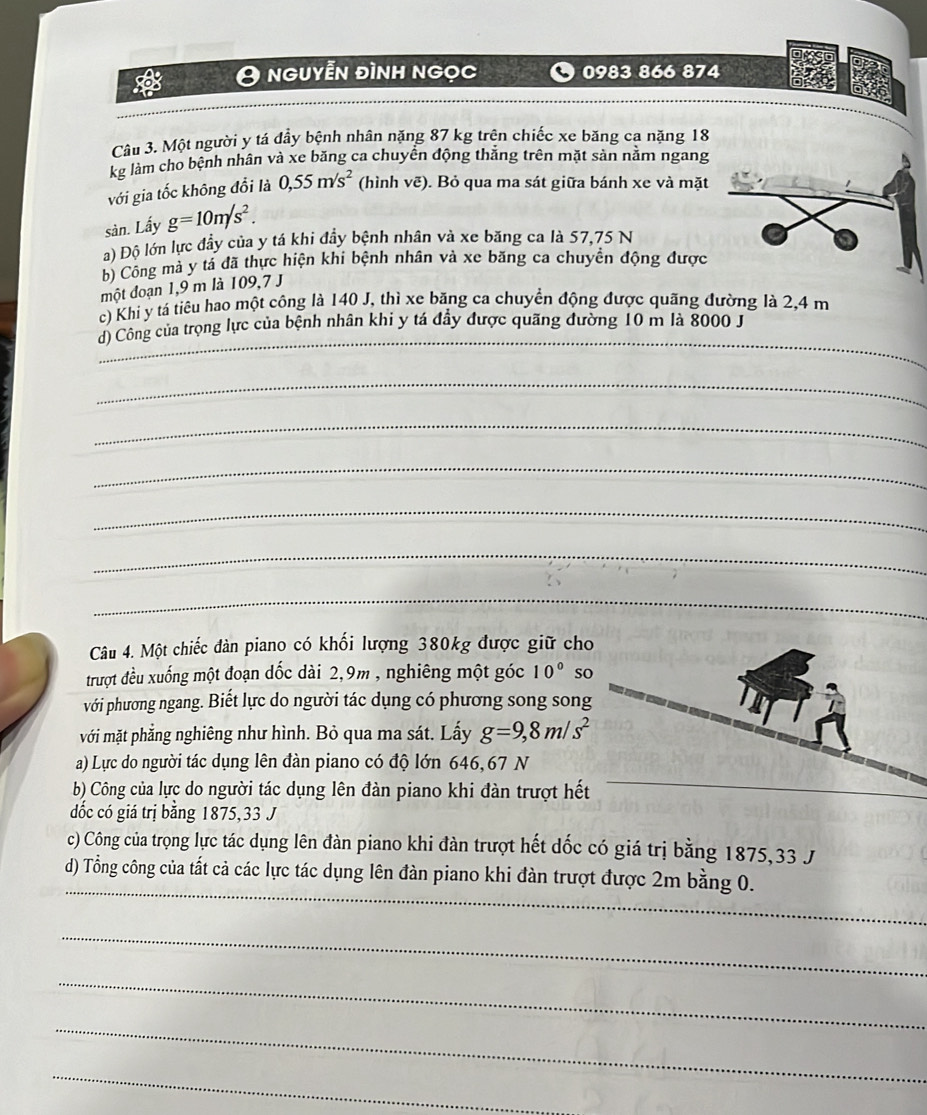 NGUYỄN ĐÌNH NGỌC 0983 866 874
Câu 3. Một người y tá đẩy bệnh nhân nặng 87 kg trên chiếc xe băng ca nặng 18
kg làm cho bệnh nhân và xe băng ca chuyển động thẳng trên mặt sàn nằm ngang
với gia tốc không đổi là 0,55 m/s² (hình vẽ). Bỏ qua ma sát giữa bánh xe và mặt
sàn. Lấy g=10m/s².
a) Độ lớn lực đẩy của y tá khi đẩy bệnh nhân và xe băng ca là 57,75 N
b) Công mà y tá đã thực hiện khi bệnh nhân và xe băng ca chuyển động được
một đoạn 1,9 m là 109,7 J
c) Khi y tá tiêu hao một công là 140 J, thì xe băng ca chuyển động được quãng đường là 2,4 m
d) Công của trọng lực của bệnh nhân khi y tá đẩy được quãng đường 10 m là 8000 J
Câu 4. Một chiếc đàn piano có khối lượng 380kg được giữ cho
trượt đều xuống một đoạn dốc dài 2,9m , nghiêng một góc 10⁰ so
với phương ngang. Biết lực do người tác dụng có phương song song
với mặt phẳng nghiêng như hình. Bỏ qua ma sát. Lấy g=9,8 m/s²
a) Lực do người tác dụng lên đàn piano có độ lớn 646,67 N
b) Công của lực do người tác dụng lên đàn piano khi đàn trượt hết
dốc có giá trị bằng 1875,33 J
c) Công của trọng lực tác dụng lên đàn piano khi đàn trượt hết dốc có giá trị bằng 1875,33 J
d) Tổng công của tất cả các lực tác dụng lên đàn piano khi đàn trượt được 2m bằng 0.